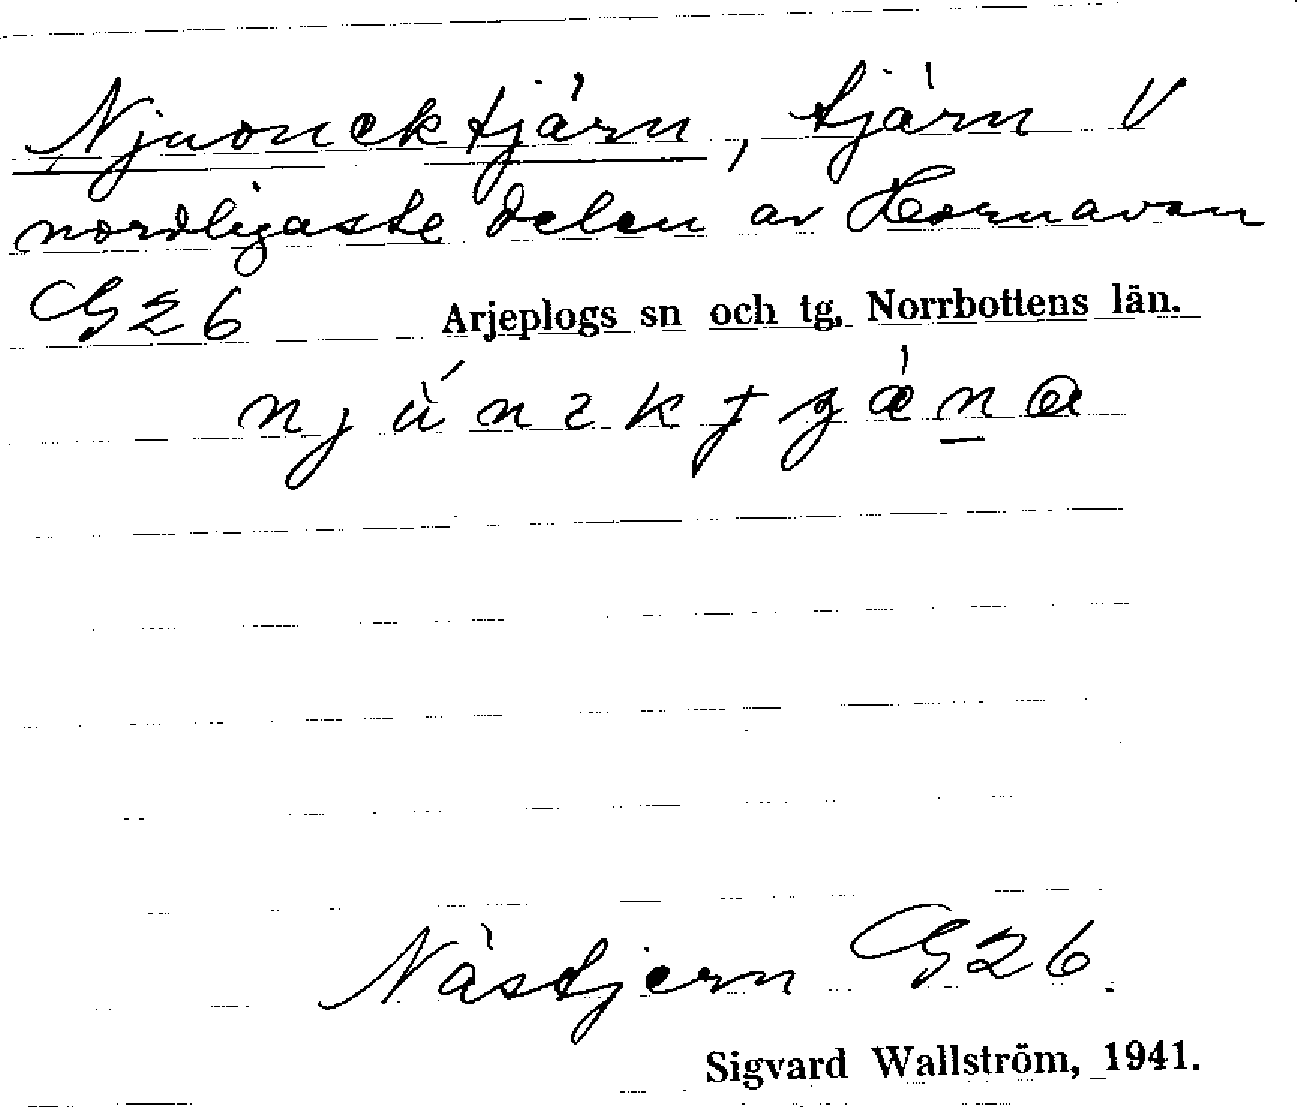 Njuonektjärn, tjärn V
nordligaste delen av Hornavan
G26 Arjeplogs sn och tg, Norrbottens län.
Nästjern G26.
Sigvard Wallström, 1941.